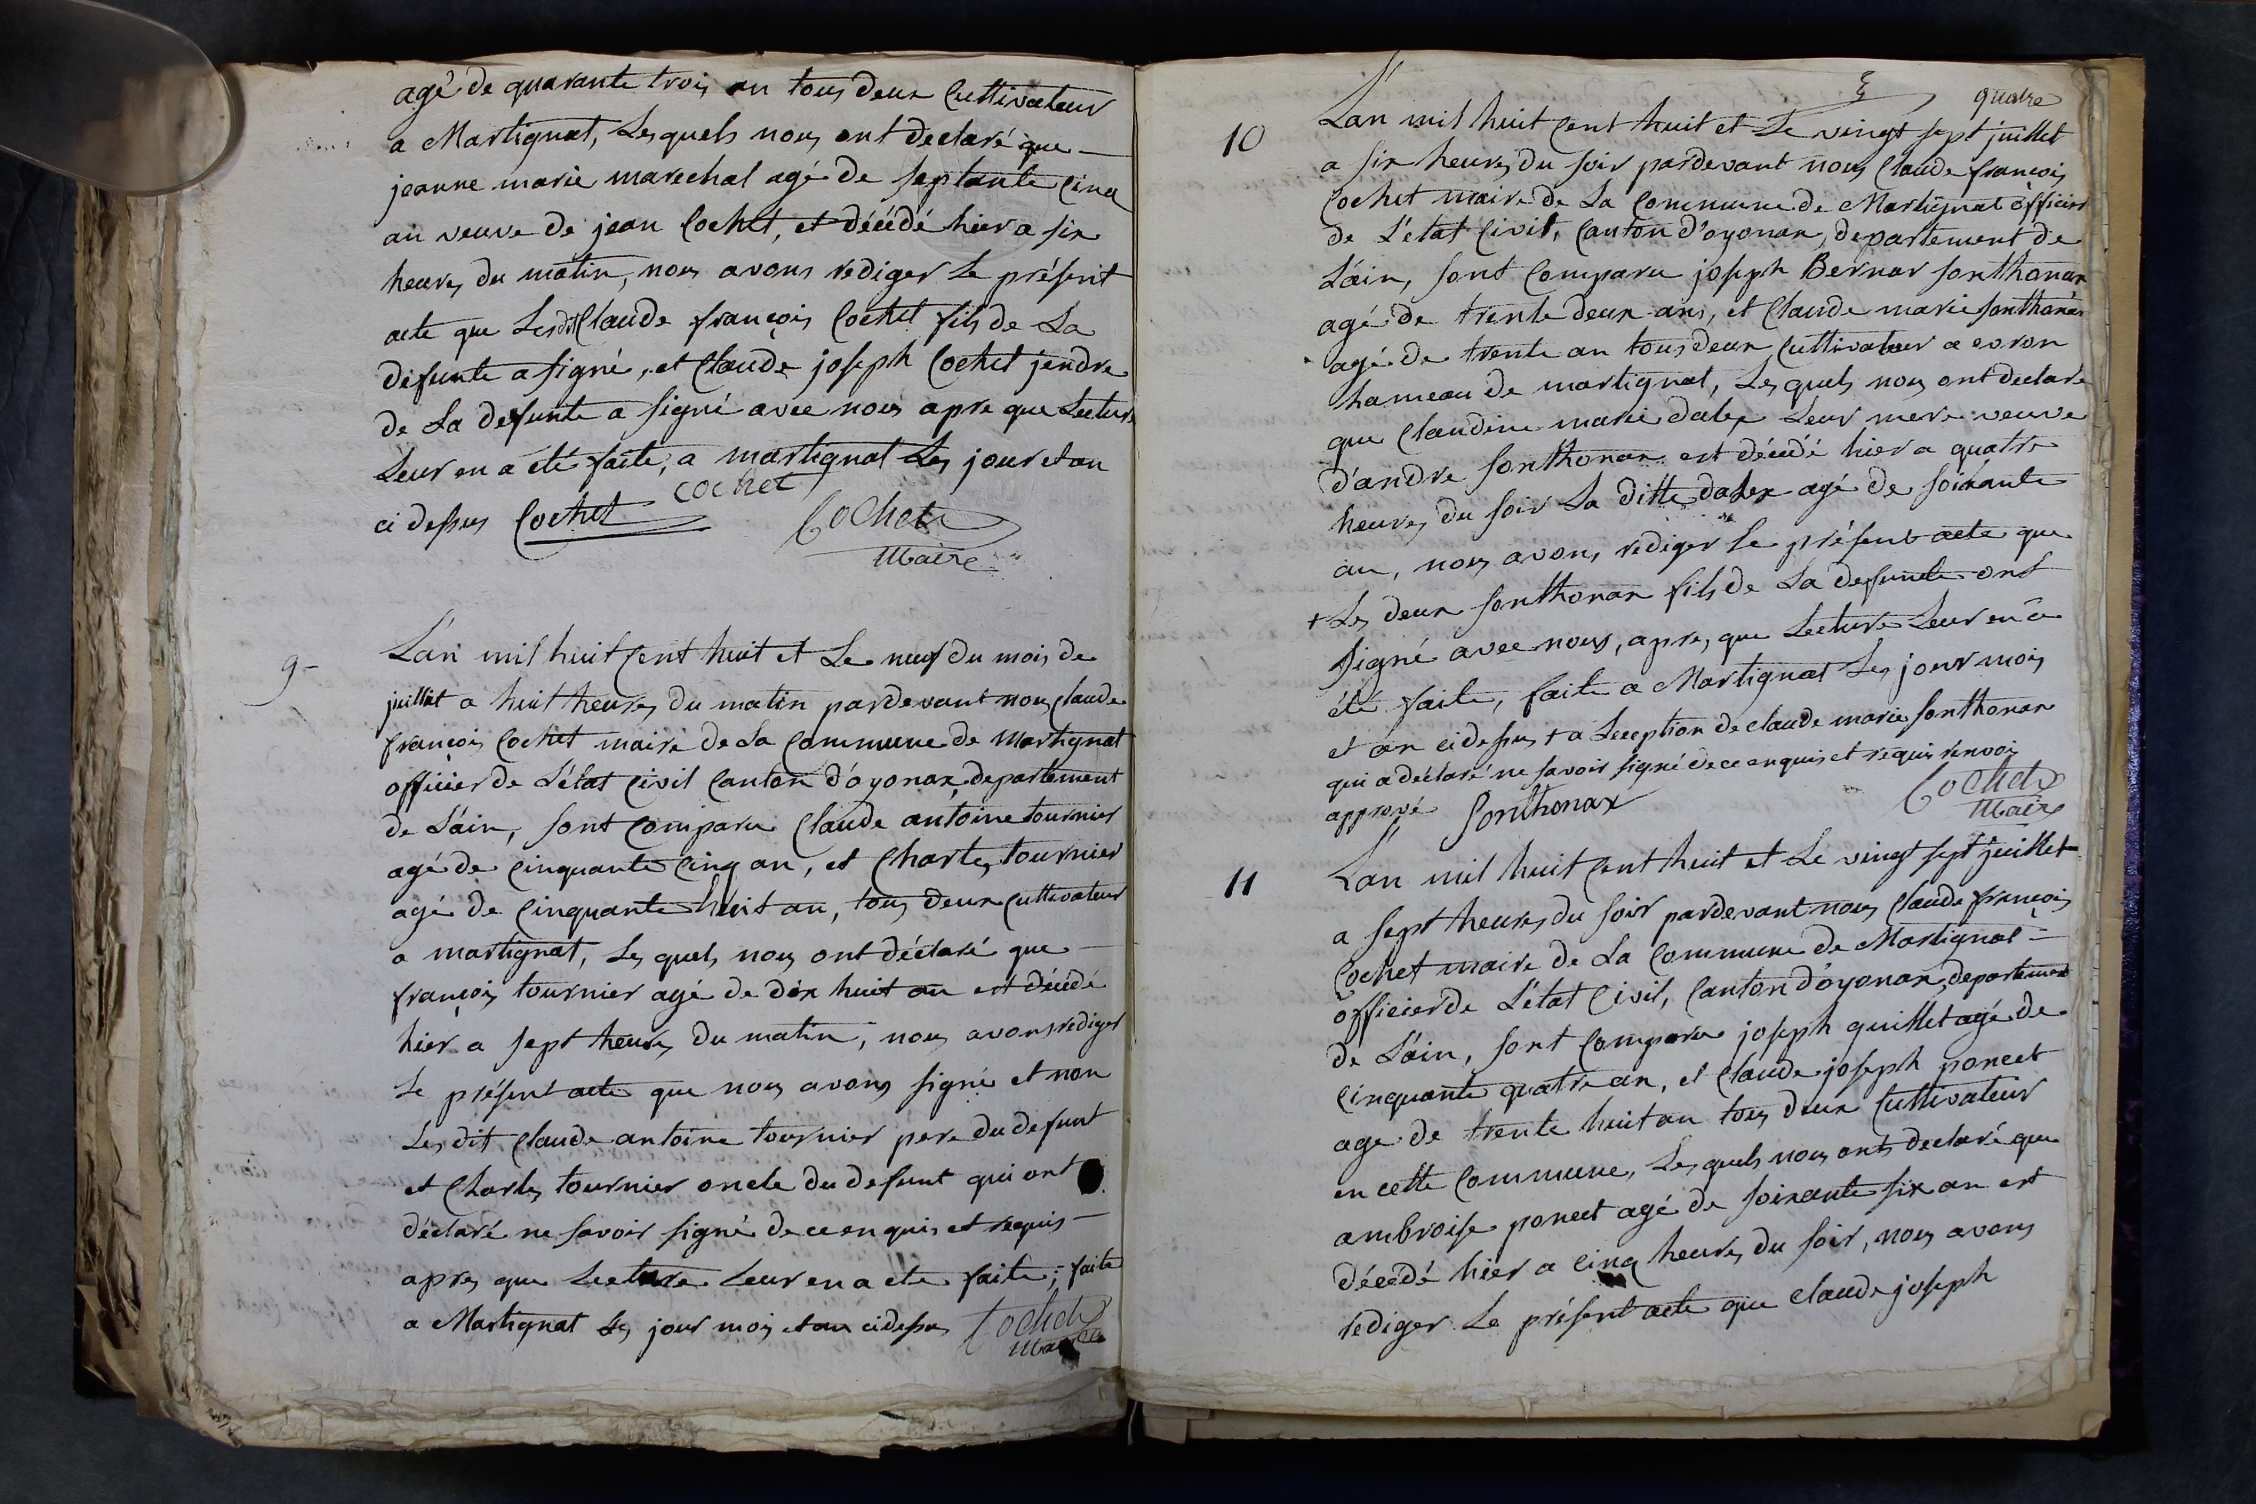 agé de quarante trois an tous deux Cultivateur
a Martignat, Lesquels nous ont declaré que —
jeanne marie marechal agé de septante cinq
an veuve de jean Cochet, et décédé hier a six
heures du matin, nous avons rediger Le présent
acte que Lesdit Claude françois Cochet fils de La
défunte a signé, et Claude joseph Cochet jendre
de La defunte a signé avec nous apre que Lecture
Leur en a été faite, a martignat Les jour et an
ci dessus Cochet cochet Cochet
Maire
9-
L'an mil huit Cent huit et Le neuf du mois de
juillet a huit heures du matin pardevant nous Claude
françois Cochet maire de La Commune de Martignat
officier de L'état Civil Canton d'oyonax, departement
de L'ain, sont Comparu Claude antoine tournier
agé de Cinquante Cinq an, et Charles tournier
agé de Cinquante huit an, tous deux Cultivateur
a martignat, Les quels nous ont déclaré que —
françois tournier agé de dix huit an est décédé
hier a sept heures du matin, nous avons rediger
Le présent acte que nous avons signé et non
Les dit Claude antoine tournier pere du defunt
et Charles tournier oncle du defunt qui ont
déclaré ne savoir signé de ce enquis et requis —
apres que Lecture Leur en a ete faite, faite
a Martignat Les jour mois et an cidessus Cochet
Maire
quatre
10
L'an mil huit Cent huit et Le vingt sept juillet
a six heures du soir pardevant nous Claude françois
Cochet maire de La Commune de Martignat officier
de L'état Civil, Canton d'oyonax, departement de
L'ain, sont Comparu joseph Bernar sonthonax
agé de trente deux ans, et Claude marie sonthonax
agé de trente an tous deux Cultivateur a evron
hameau de martignat, Les quels nous ont declare
que Claudine marie dalex Leur mere veuve
d'andre sonthonax est décédé hier a quatre
heures du soir La ditte dalex agé de soixante
an, nous avons rediger Le présent acte que
+ Les deux sonthonax fils de La defunte ont
signé avec nous, apres que Lecture Leur en a
été faite, faite a Martignat Les jour mois
et an cidessus + a Lexeption de claude marie sonthonax
qui a déclaré ne savoir signé de ce enquis et requis renvois
apprové Sonthonax Cochet
Maire
11
L'an mil huit Cent huit et Le vingt sept juillet
a sept heures du soir pardevant nous Claude françois
Cochet maire de La Commune de Martignat =
officier de L'état Civil, Canton d'oyonax, departement
de L'ain, sont Comparu joseph quillet agé de
Cinquante quatre an, et Claude joseph poncet
age de trente huit an tous deux Cultivateur
en cette Commune, Les quels nous ont declaré que
ambroise poncet agé de soixante six an est
décédé hier a Cinq heures du soir, nous avons
rediger Le présent acte que claude joseph